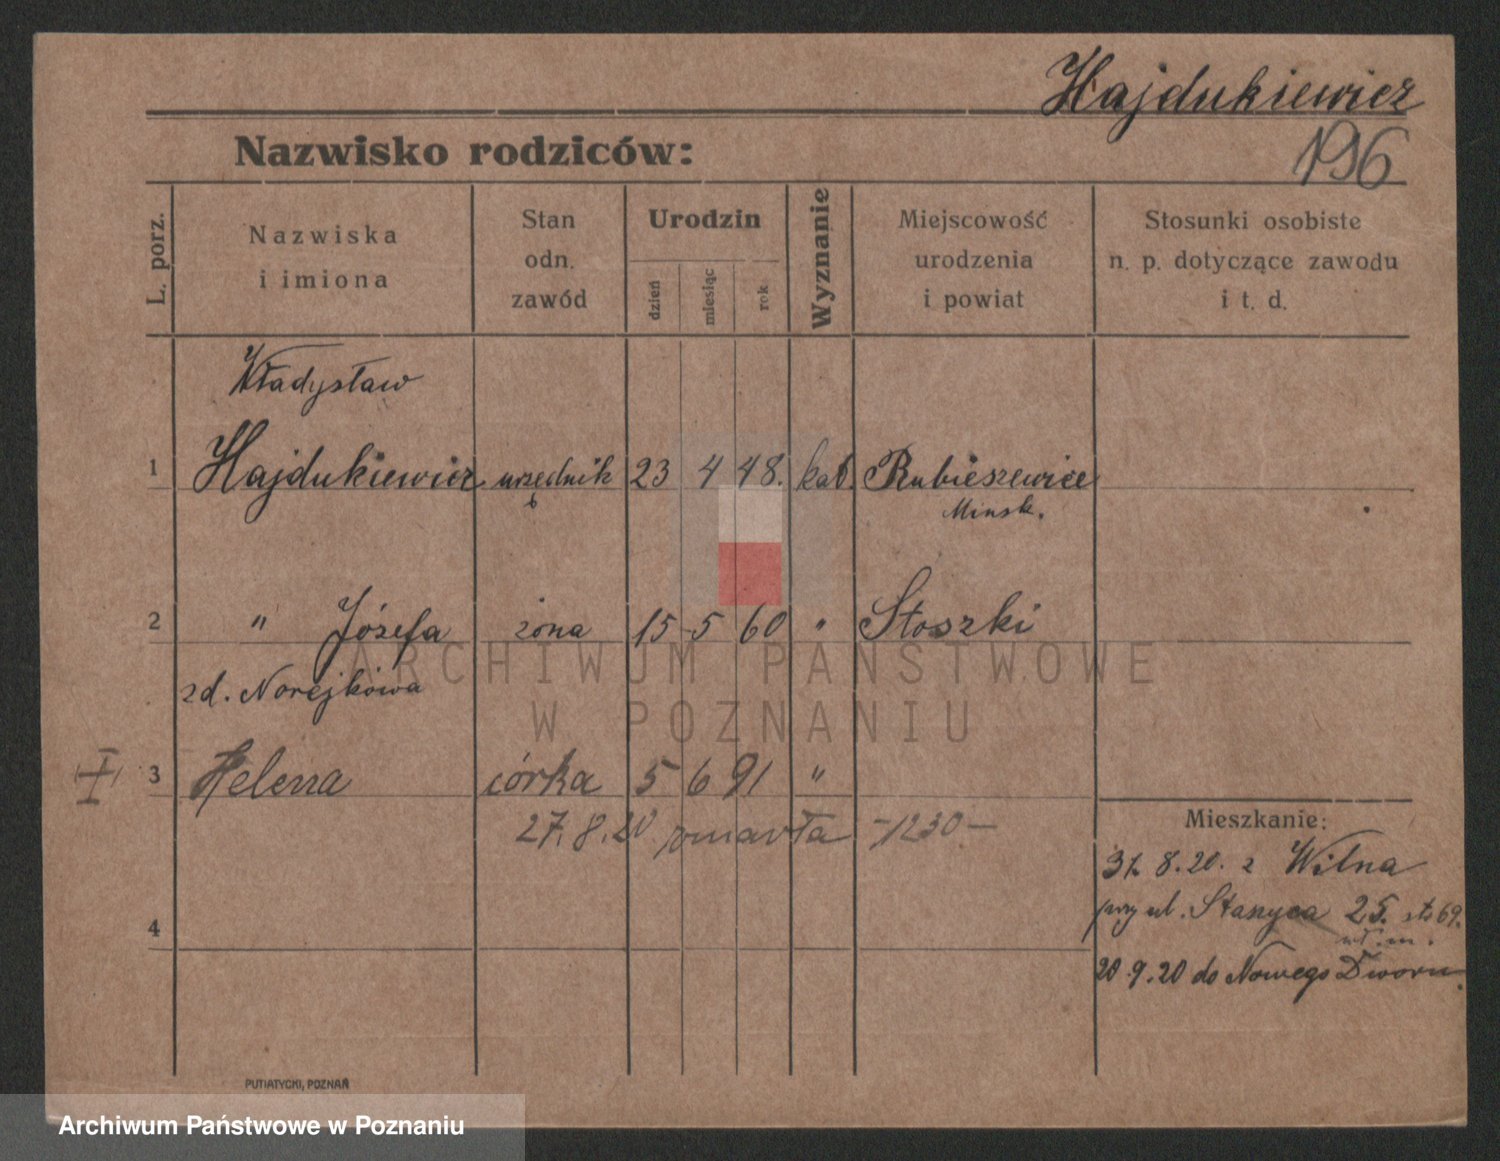 Hajdukiewicz
196
Nazwisko rodziców:
L. porz.
Nazwiska
i imiona
Stan
odn.
zawód
Urodzin
dzień
miesiąc
rok
Wyznanie
Miejscowość
urodzenia
i powiat
Stosunki osobiste
n. p. dotyczące zawodu
i t. d.
Władysław
1 Hajdukiewicz urzędnik 23 4 48. kat. Rubieszewice
Minsk.
2 " Józefa żona 15 5 60 " Stoszki
zd. Norejkówa
I 3 Helena córka 5 6 91 "
27. 8. 20 zmarła -1230-
Mieszkanie:
31. 8. 20. z Wilna
przy ul. 25.
4
20.9.20 do Nowego Dworu.
PUTIATYCKI, POZNAŃ
ARCHIWUM PAŃSTWOWE
W POZNANIU
Archiwum Państwowe w Poznaniu